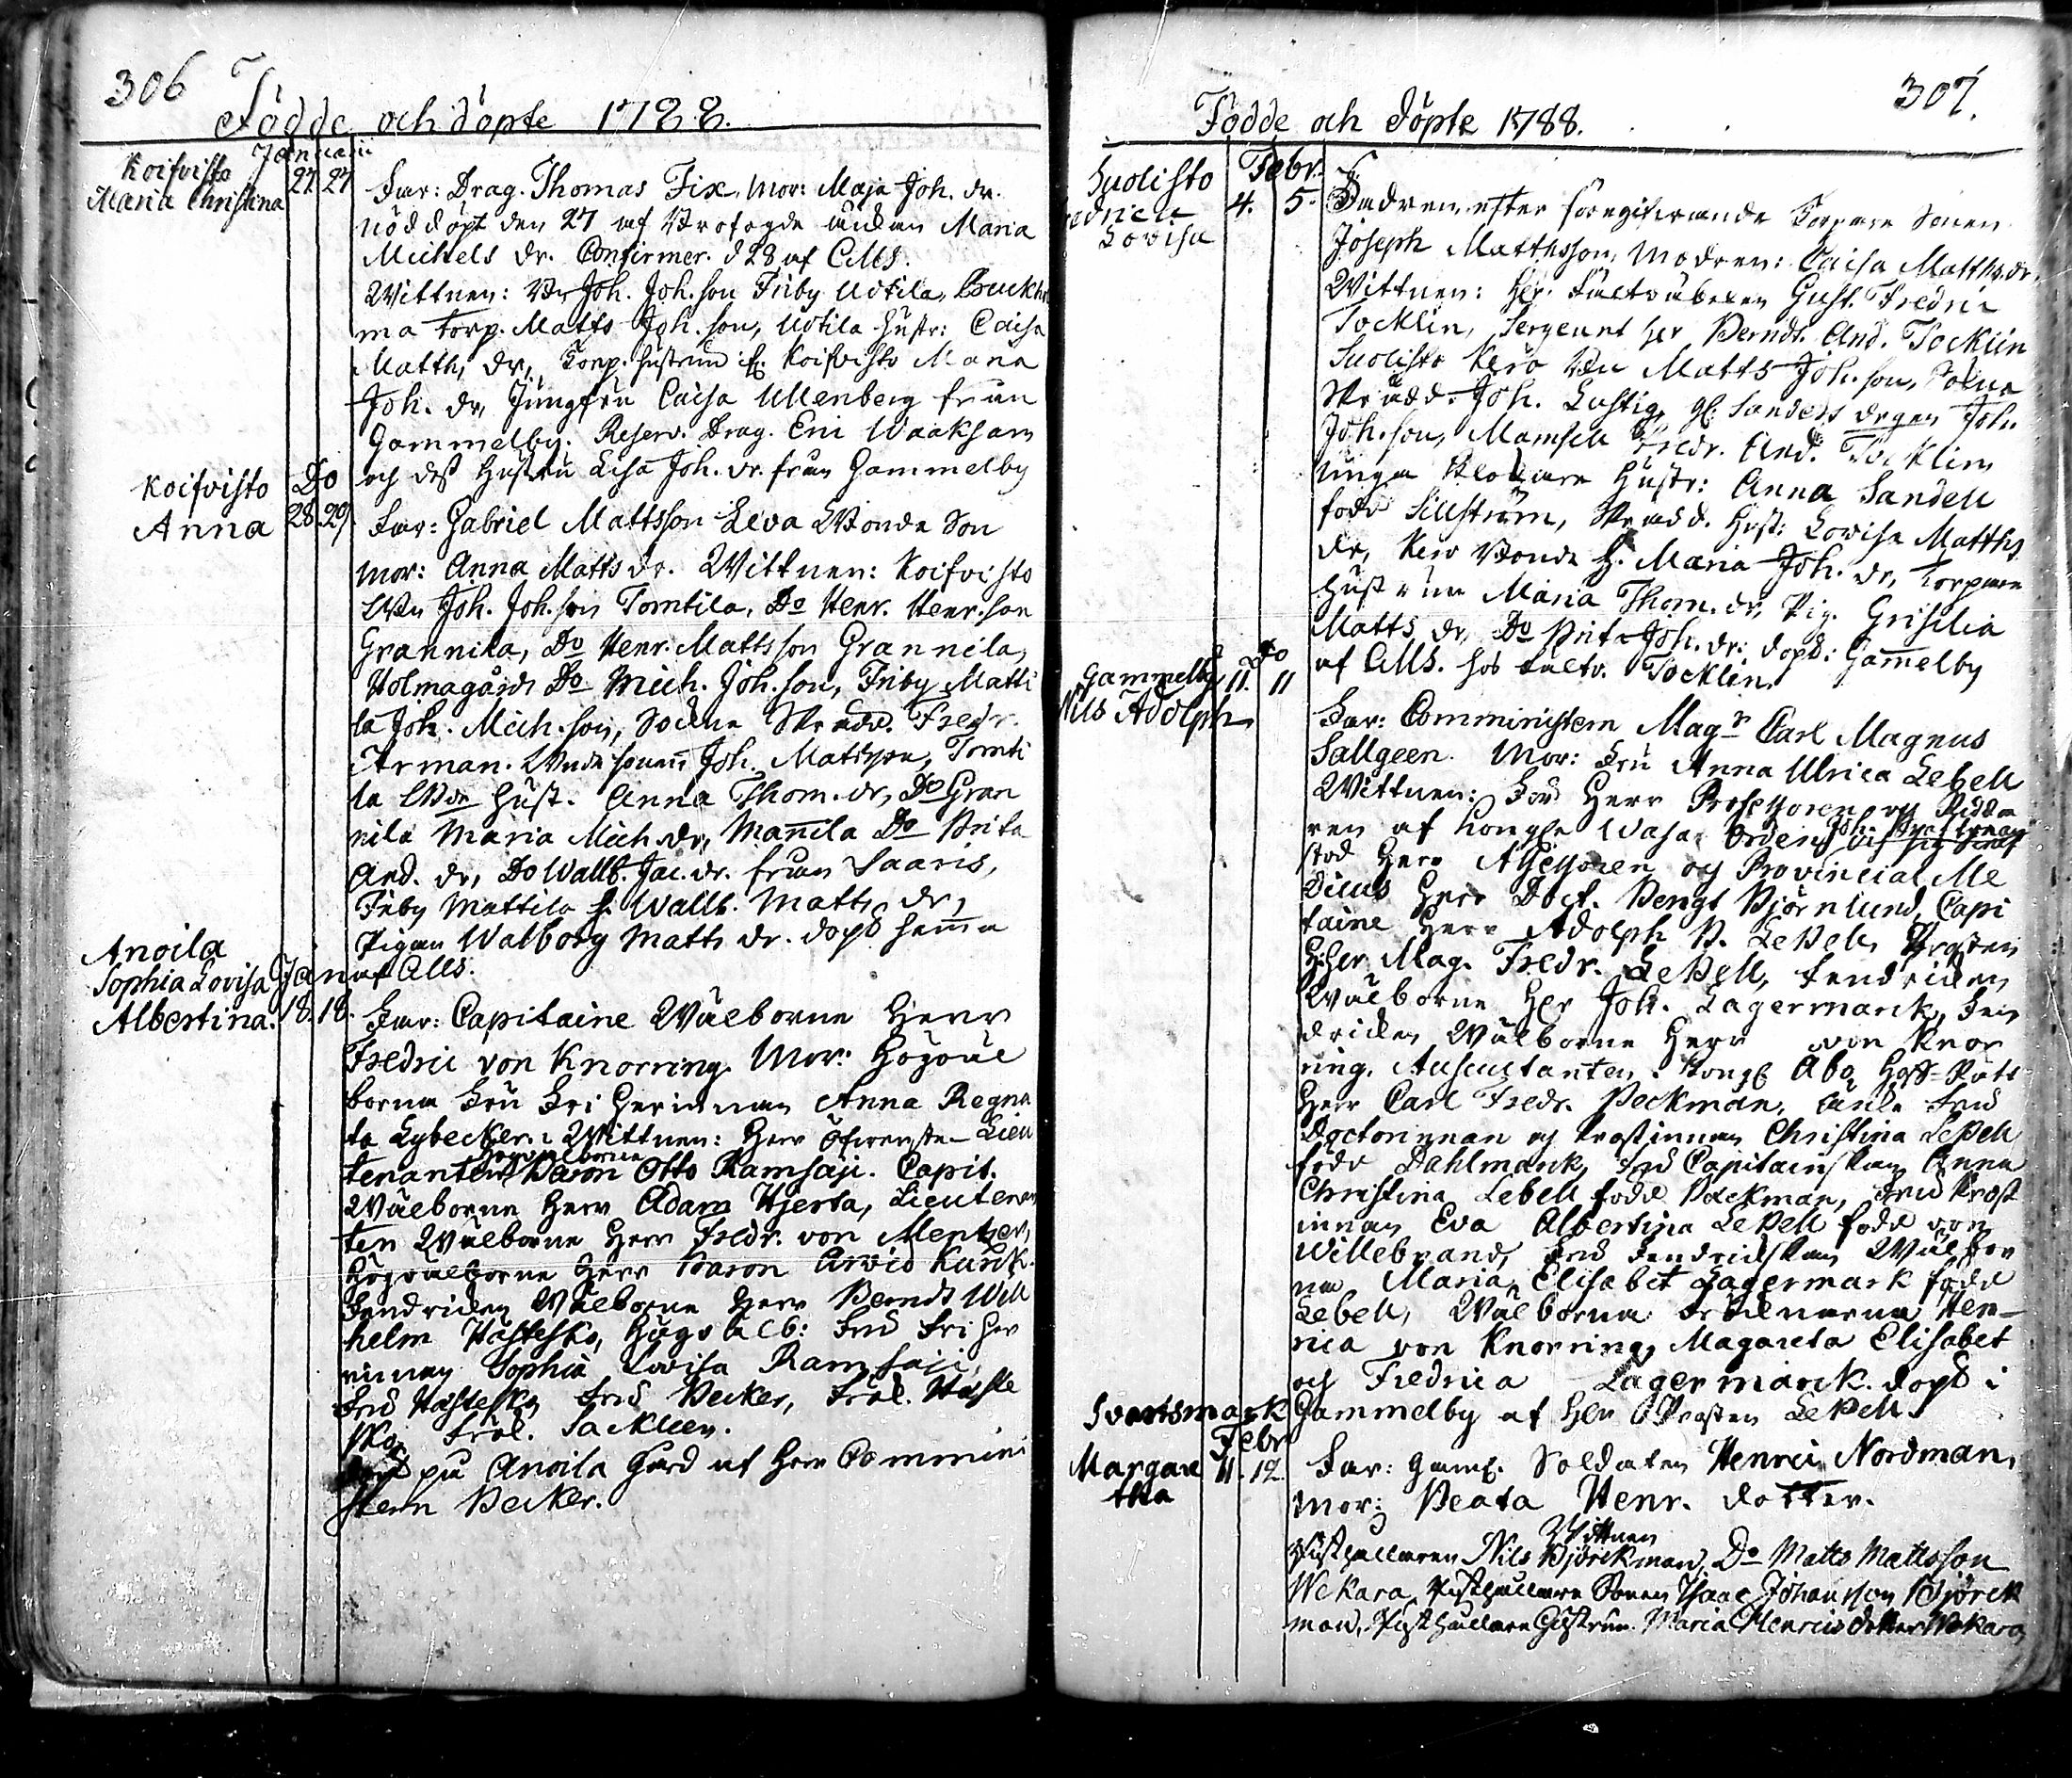 306
Födde och döpte 1788.
Januarii
Koifvisto 27. 27
Maria Christina
Far: Drag. Thomas Fix, Mor: Maja Joh. dr.
nöddöpt den 27 af Maria
Michels dr. Confirmer. d 28 af CMS.
Wittnen: Joh. Joh. son Friby Uotila,
ma torp. Matts Joh. son, Uotila hustr: Caisa
Matth. dr, Torp. hustrun Koifvisto Maria
Joh. dr, Jungfru Caisa Ullenberg från
Gammelby. Reserv. Drag. Eric Waaksam
och dess hustru Lisa Joh. dr. från Gammelby
Koifvisto Do
Anna 28. 29.
Far: Gabriel Mattsson Leva Bonde Son
Mor: Anna Matts dr. Wittnen: Koifvisto
Joh. Joh. son Tomtila, Do Henr. Henr. son
Grannila, Do Henr. Mattsson Grannila,
Holmagårds Do Mich. Joh. son, Friby Matti
la Joh. Mich. son, Sockne Skrädd. Fredr.
Arman. Joh. Mattsson, Tomti
la hust. Anna Thom. dr, Do Gran
nila Maria Mich. dr, Mannila Do Brita
And. dr, Do Wallb. Jac. dr. från Saaris,
Friby Mattila h. Wallb. Matts dr,
Pigan Walborg Matts dr. döpt hemma
af CMS.
Anoila
Sophia Lovisa Jan
Albertina. 18. 18.
Far: Capitaine Wälborne Herr
Fredric von Knorring. Mor: Högväl
borna Fru Friherinnan Anna Regna
ta Lybecker. Wittnen: Herr Öfverste Lieu
tenanten Högvälborne Baron Otto Ramsaji. Capit.
Wälborne Herr Adam Hjerta, Lieutenan
ten Wälborne Herr Fredr. von Mentzer,
Högvälborne Herr Baron Arvid Kurck.
Fendricken Wälborne Herr Berndt Will
helm Hästesko, Högvälb: Fru Friher
rinnan Sophia Lovisa Ramsaji,
Fru Hästesko, Fru Becker, Fröl. Häste
sko, Fröl. Tackleen.
döpt på Anoila Gård af Herr Commini
stern Becker.
307.
Födde och döpte 1788.
Febr.
Suolisto 4. 5.
Fredrica
Lovisa
Fadren efter föregifvande Torpare Sonen
Joseph Matthsson, Modren: Caisa Matths. dr.
Wittnen: Hr. Fältväbelen Gust. Fredric
Tocklin, Sergeant Her Berndt. And. Tocklin
Suolisto Kero Matts Joh. son, Sockne
Skrädd. Joh. Lustig, Sandels drgen Joh.
Joh. son, Mamsell Fredr. And. Tocklin
unga Klockare Hustr: Anna Sandell
född Sillström, Skrädd. Hust: Lovisa Matths
dr, Kero Bonde h. Maria Joh. dr, Torpare
hustrun Maria Thom. dr, Pig. Grisilia
Matts dr, Do Brita Joh. dr: döpt: Gammelby
af CMS. hos Fältv. Tocklin.
Do
Gammelby 11. 11
Nils Adolph
Far: Comministern Mag:r Carl Magnus
Sallgeen. Mor: Fru Anna Ulrica Lebell
Wittnen: Herr Professoren och Ridda
ren af Kongl. Wasa Orden
Herr Assessoren och Provincial Me
dicus Herr Doct. Bengt Björnlund, Capi
taine Herr Adolph B. LeBell, Prosten
H:Her Mag. Fredr. LeBell, Fendricken
Wälborne Her Joh. Lagermarck, Fen
dricken Wälborne Herr von Knor
ring, Auscultanten i Kongl. Åbo Hoff-Rätt
Herr Carl Fredr. Beckman, Fru
Doctorinnan och Prostinnan Christina LeBell
född Dahlmarck, Fru Capitainskan Anna
Christina Lebell född Beckman, Fru Prost
innan Eva Albertina LeBell född von
Willebrand, Fru Fendrickskan Wälbor
na Maria Elisabet Lagermark född
Lebell, Wälborna Frökarna Hen-
rica von Knorring, Magareta Elisabet
och Fredrica Lagermarck. döpt i
Gammelby af Her Prosten LeBell.
Svartsmark
Febr
Margare 11. 12.
tha
Far: Gaml. Soldaten Henric Nordman,
Mor: Beata Henr. dotter.
Wittnen
Nils Björckman, Do Matts Mattsson
Wekara, Sonen Isaac Johansson Björck
man, Hustrun. Maria Henrics dotter Wekara,